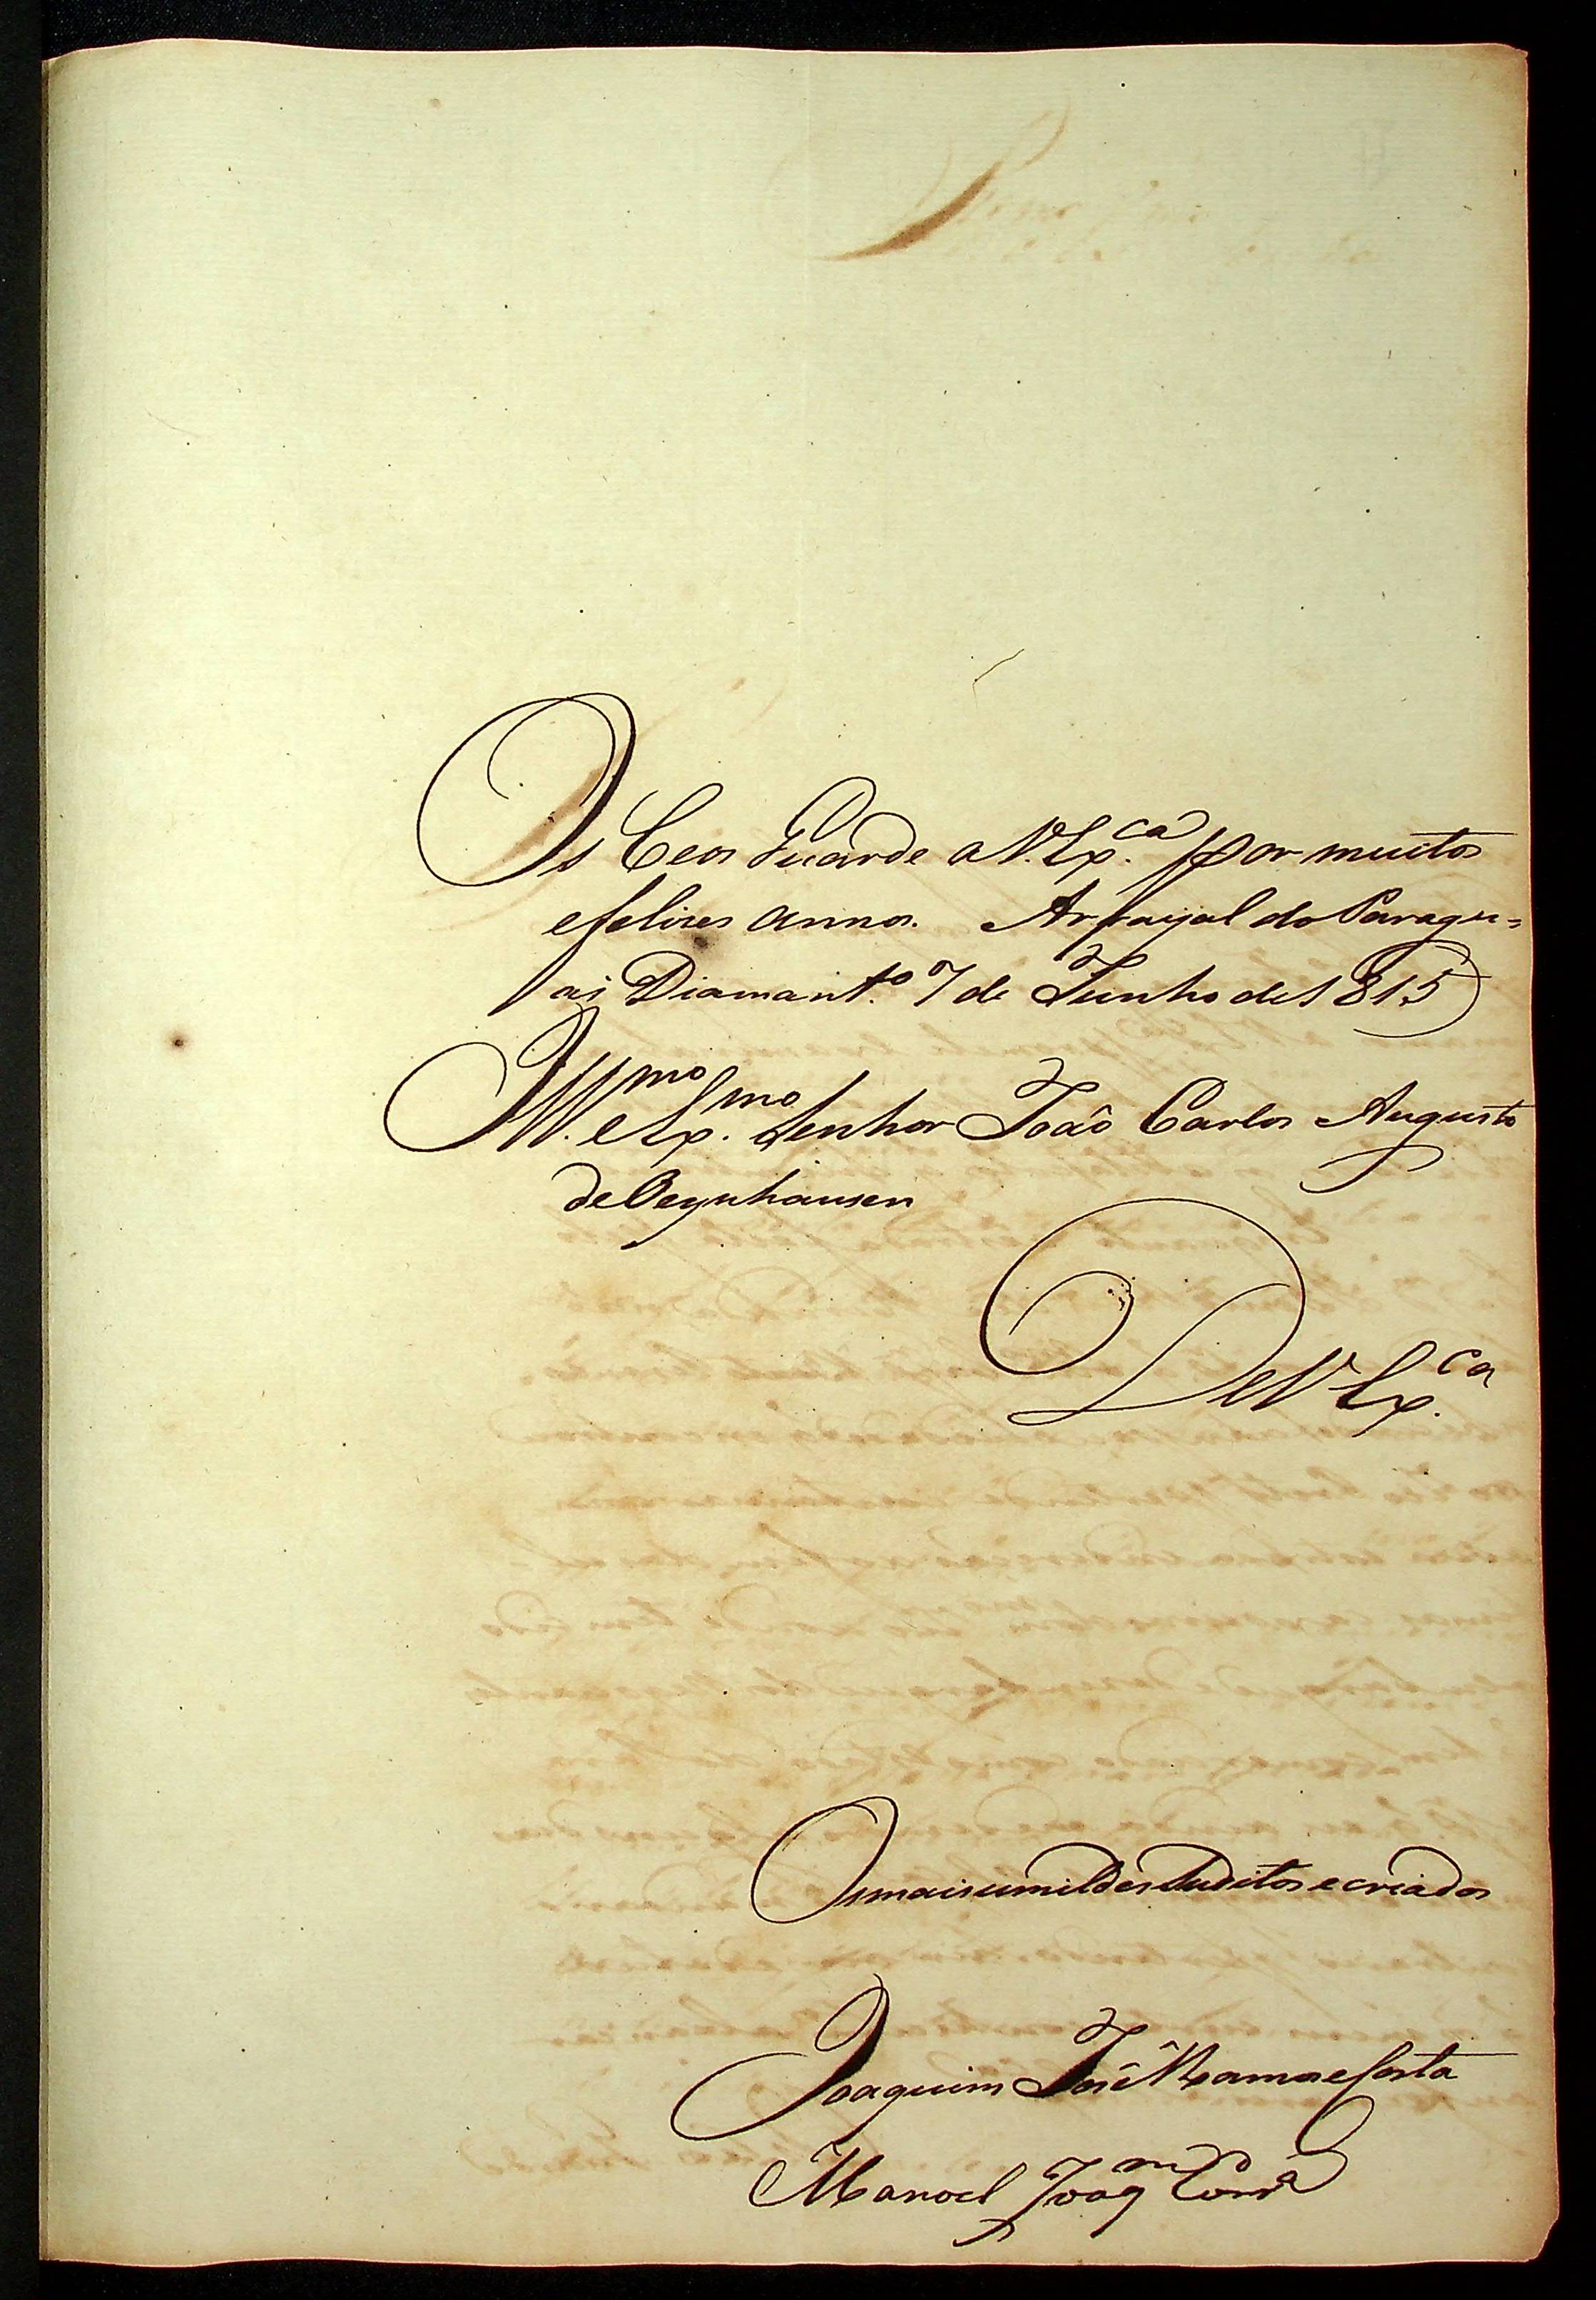 Os Ceos Guarde a V. Ex.ca por muitos
e felizes annos. Arraiyal do Paragu=
ai Diamant.o 7 de Junho de 1815
Ill.mo e Ex.mo Senhor João Carlos Augusto
de Oeynhausen
De V Ex.ca
Os mais umildes Suditos e criados
Joaquim José Ramos e Costa
Manoel Joaq.m Corr.a